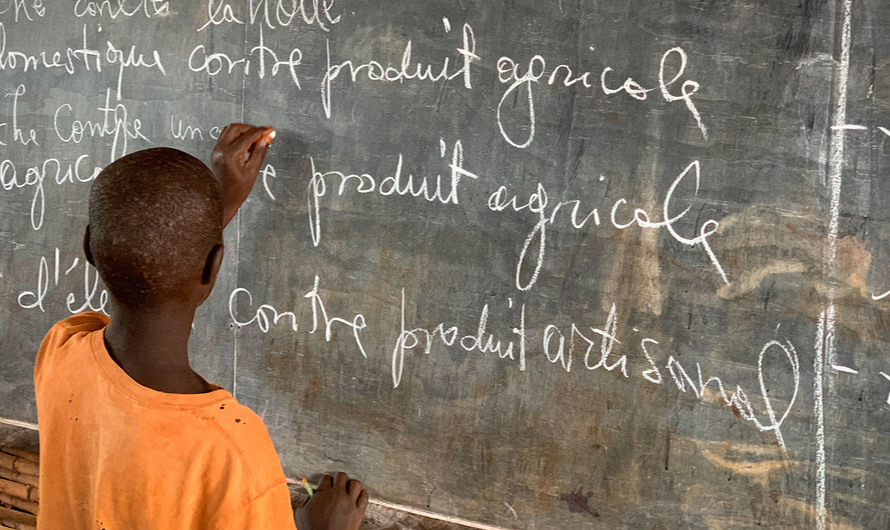 contre la houe.
domestique contre produit agricole
contre une
agric e produit agricole
d'éle contre produit artisanal